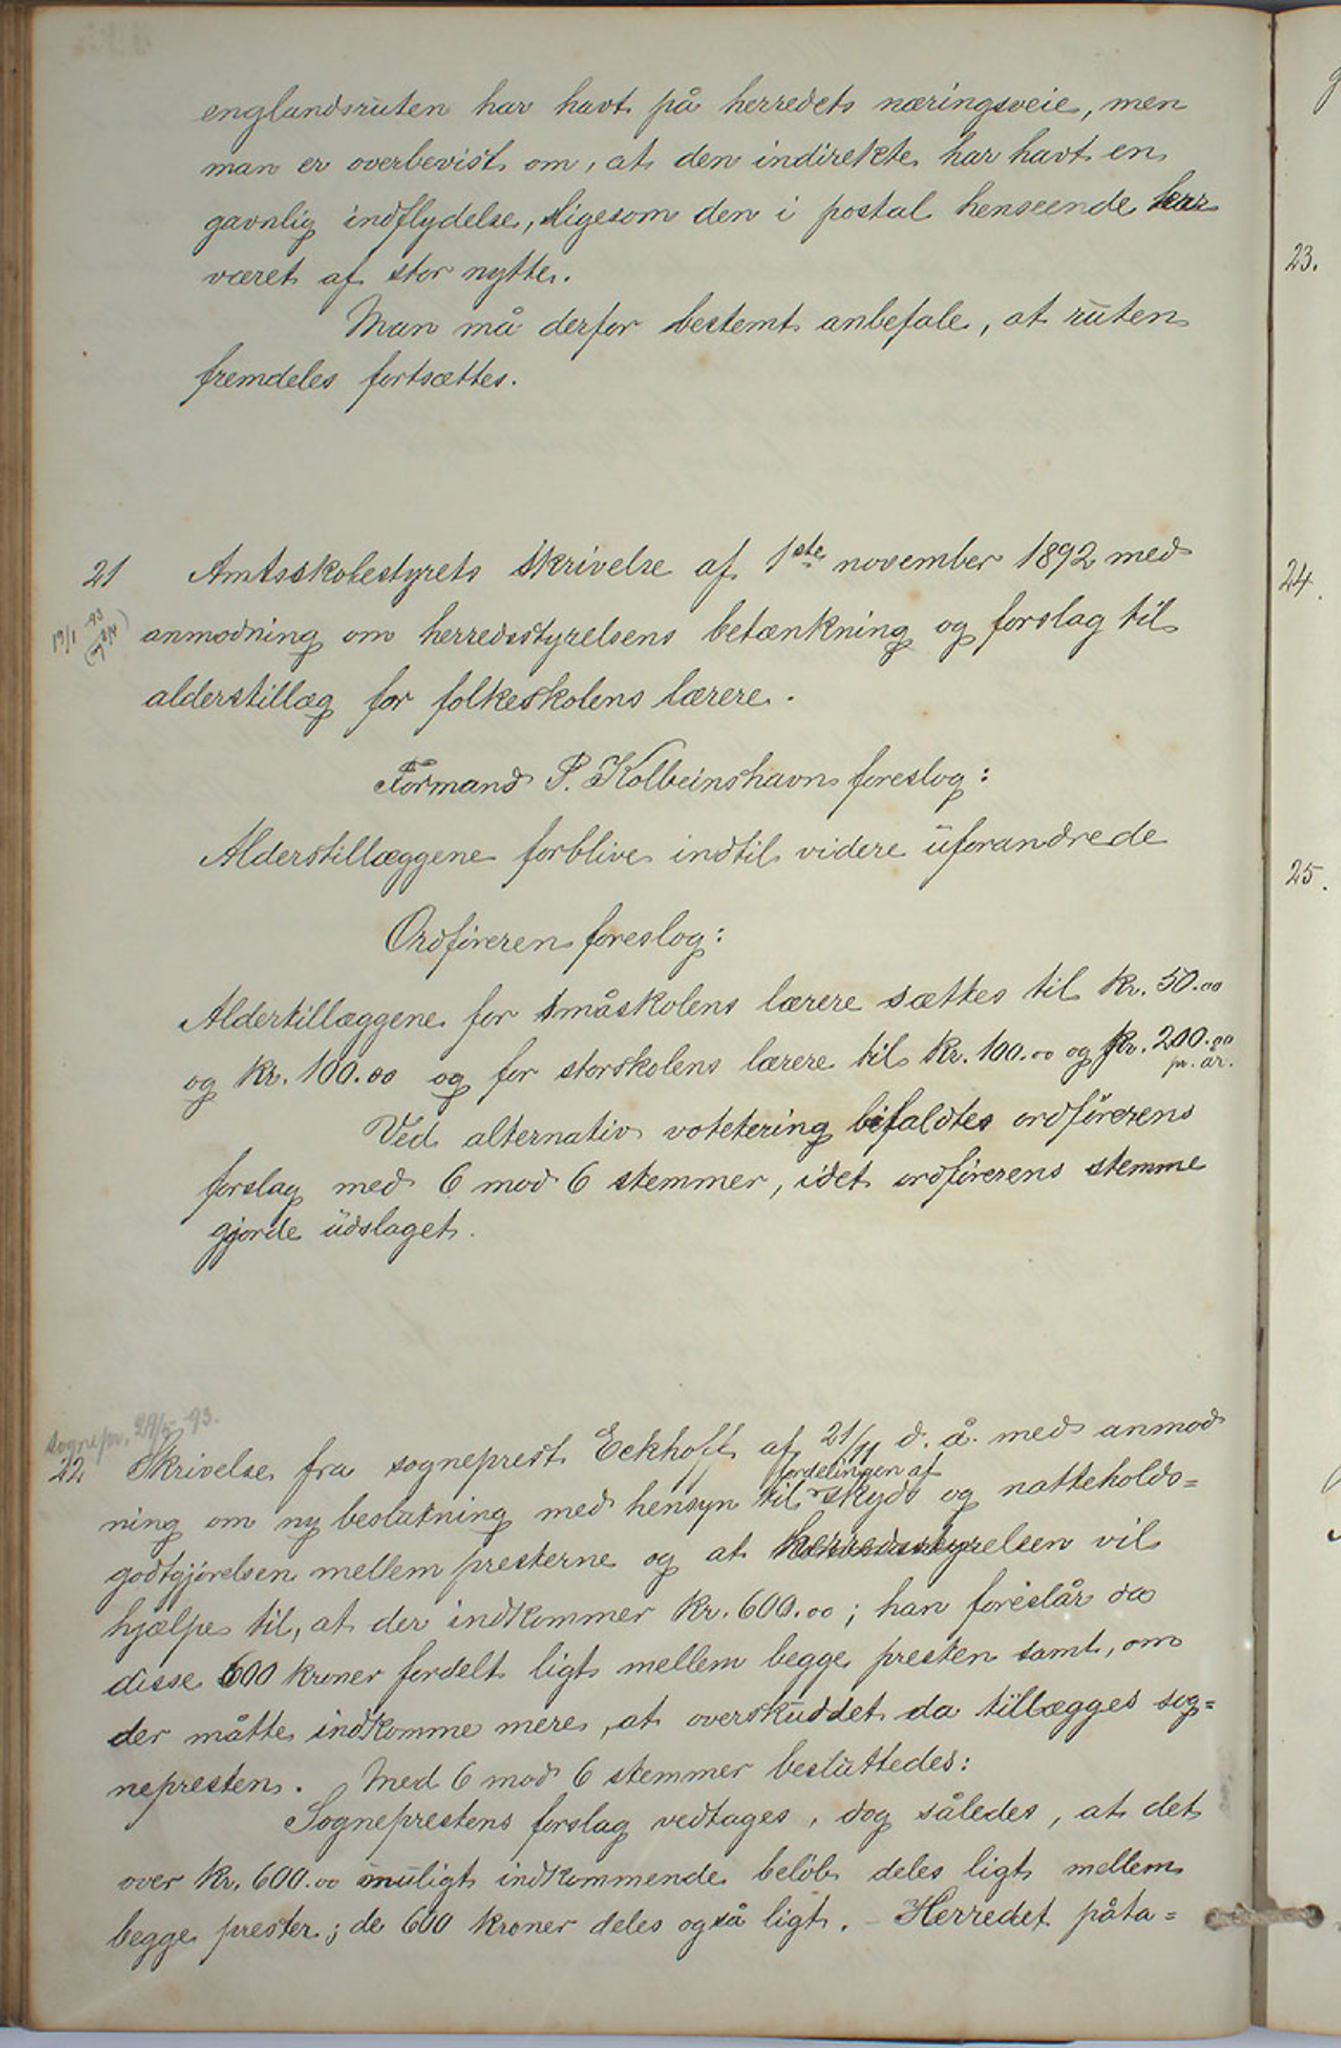 englandsruten har havt på herredets næringsveie, men
man er overbevist om, at den indirekte har havt en
gavnlig indflydelse, ligesom den i postal henseende har
været af stor nytte.
Man må derfor bestemt anbefale, at ruten
fremdeles fortsættes.
21 Amtsskolestyrets skrivelse af 1ste november 1892 med
19/1 -93
anmodning om herredsstyrelsens betænkning og forslag til
alderstillæg for folkeskolens lærere.
Formand P. Kolbeinshavn foreslog:
Alderstillæggene forblive indtil videre uforandrede
Ordføreren foreslog:
Aldertillæggene for småskolens lærere sættes til kr. 50.00
og kr. 100.00 og for storskolens lærere til kr. 100.00 og kr. 200.00
pr. år.
Ved alternativ votetering bifaldtes ordførerens
forslag med 6 mod 6 stemmer, idet ordførerens stemme
gjorde udslaget.
sognepr. 29/5 -93.
22 Skrivelse fra sogneprest Eckhoff af 21/11 d. å. med anmod
fordelingen af
ning om ny beslutning med hensyn til skyds og natteholds=
godtgjørelsen mellem presterne og at herredsstyrelsen vil
hjælpe til, at der indkommer kr. 600.00; han foreslår da
disse 600 kroner fordelt ligt mellem begge presten samt, om
der måtte indkomme mere, at overskuddet da tillægges sog=
nepresten. Med 6 mod 6 stemmer besluttedes:
Sogneprestens forslag vedtages, dog således, at det
over kr. 600.00 muligt indkommende beløb deles ligt mellem
begge prester; de 600 kroner deles også ligt. – Herredet påta=
23.
24.
25.